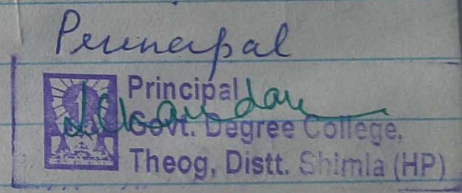 Principal
Principal
Govt. Degree College,
Theog, Distt. Shimla (HP)